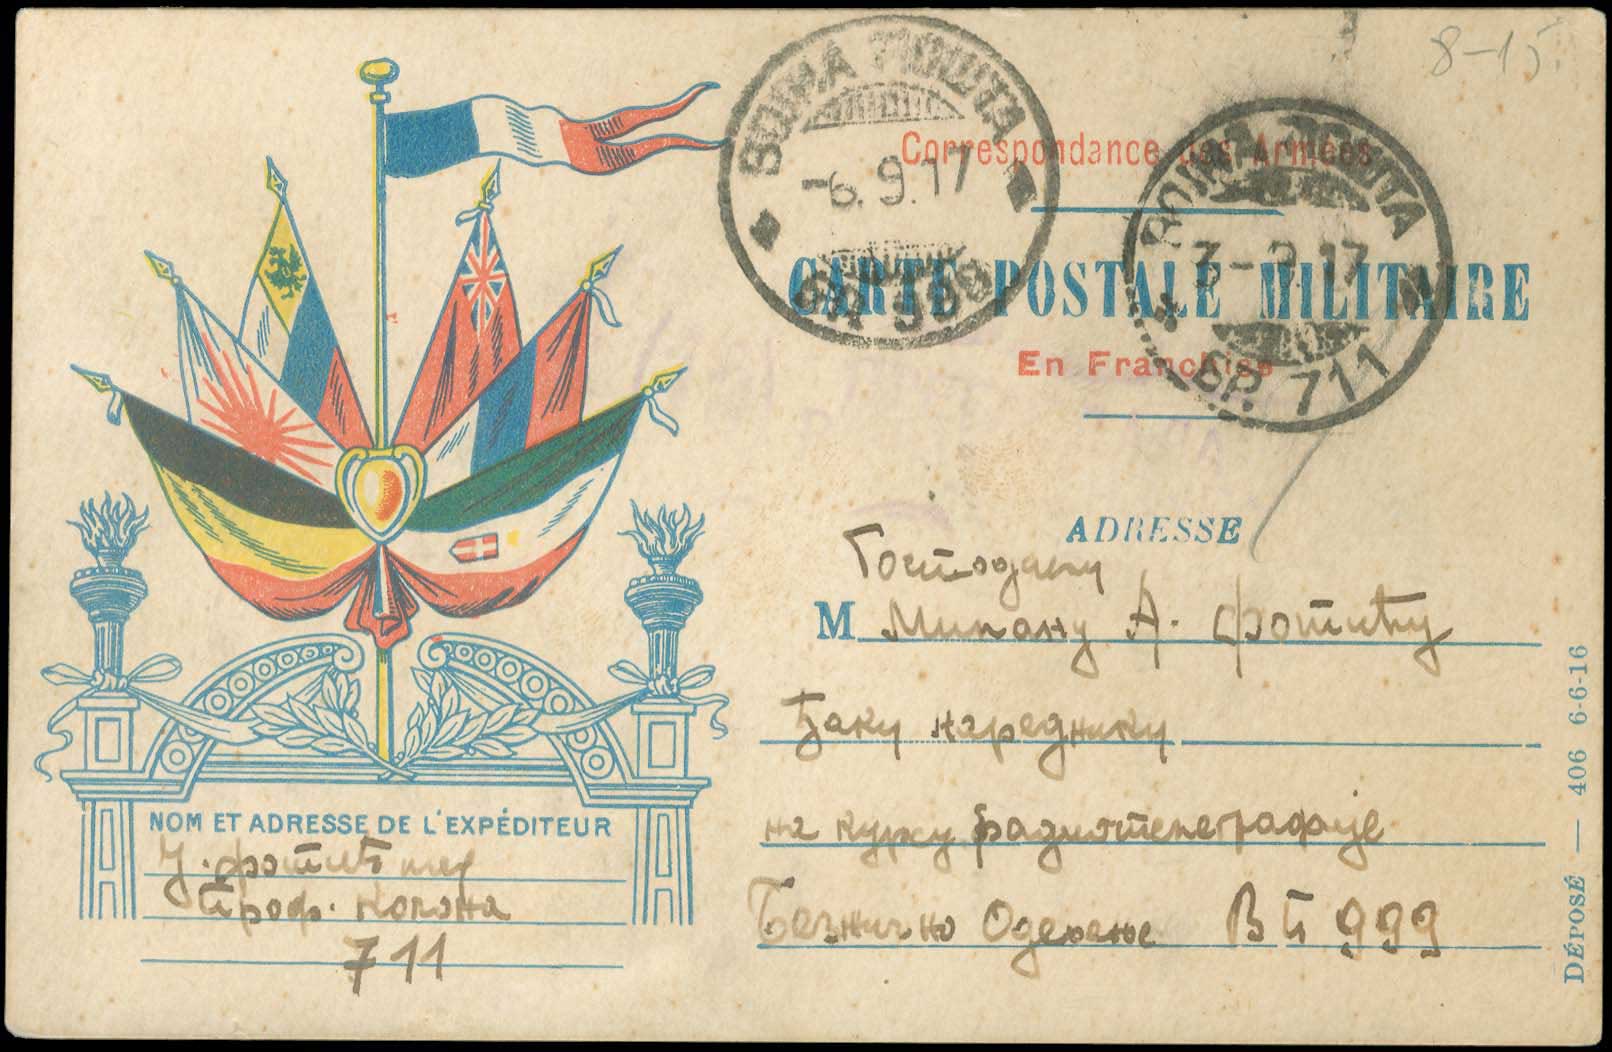 8-15.
ВОЈНА ПОШТА
-6.9.17
БР. 999
ВОЈНА ПОШТА
3-9.17
БР. 711
Correspondance des Armées
CARTE POSTALE MILITAIRE
En Franchise
ADRESSE
Господину
M Милану А. Фотићу
Ђаку нареднику
на курсу радиотелеграфије
Безнично Одељење В П 999
NOM ET ADRESSE DE L'EXPÉDITEUR
Фотић
Проф. Колона
711
DÉPOSÉ — 406 6-6-16